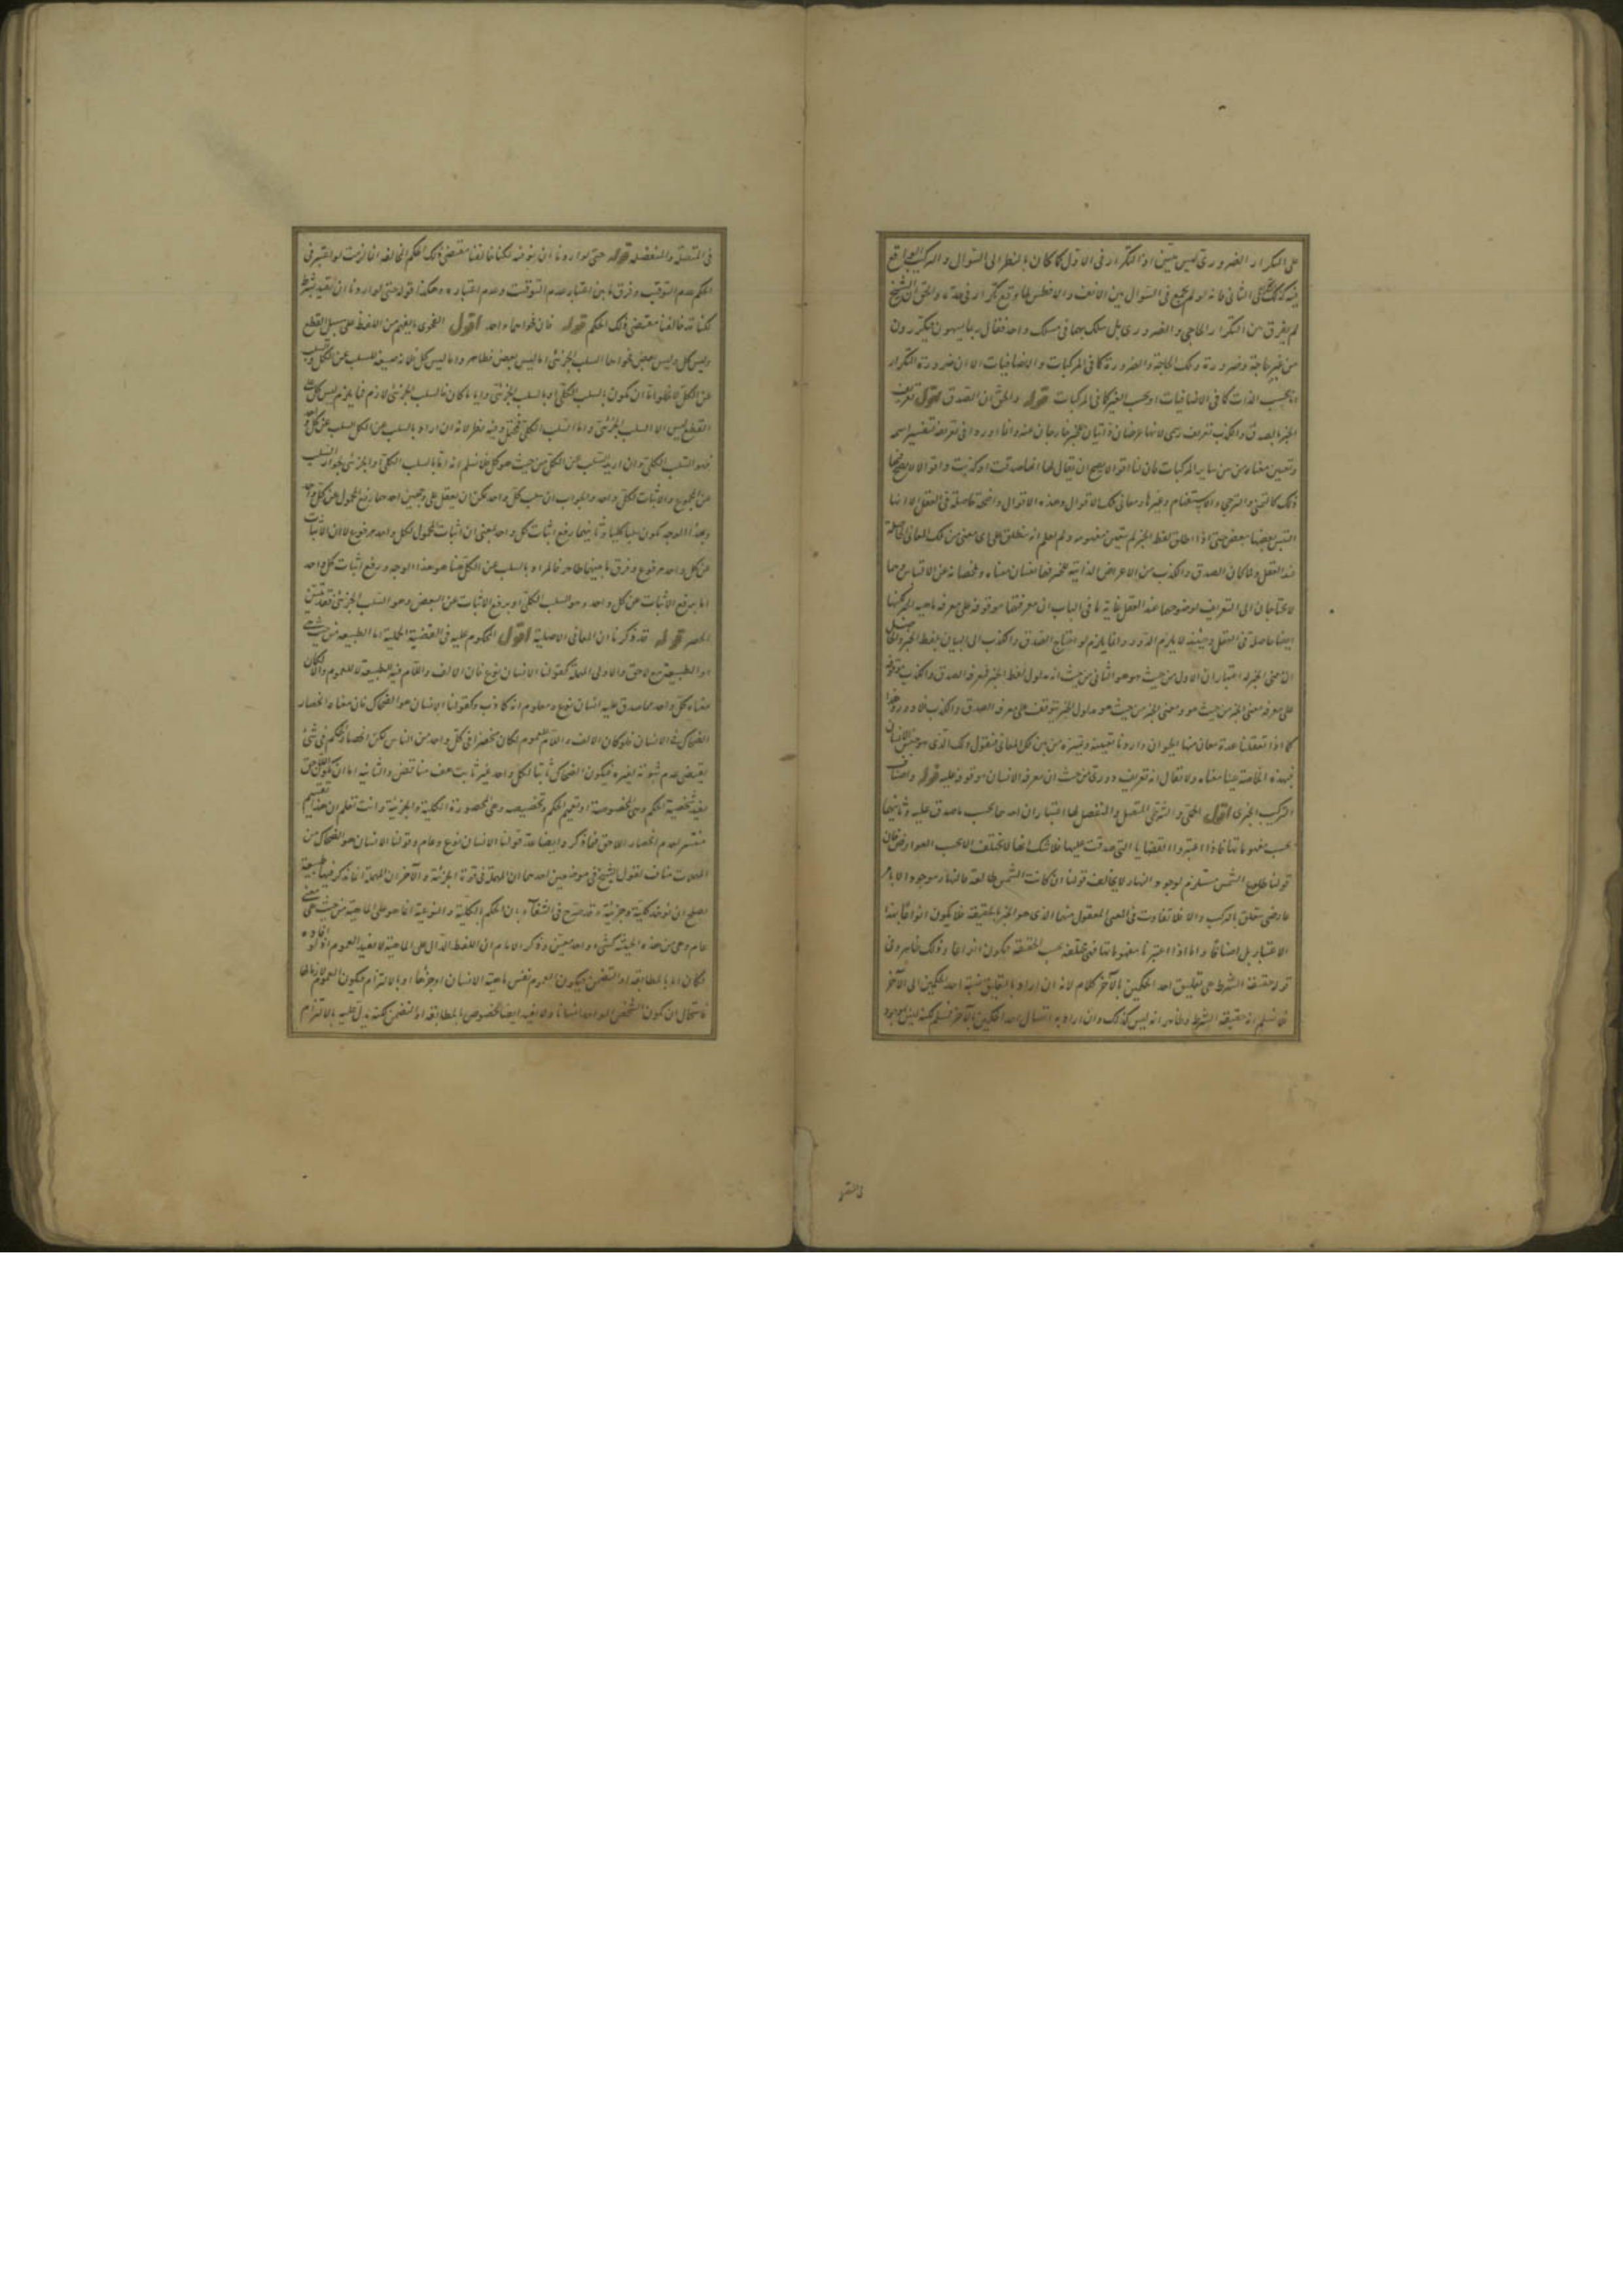 على التكرار الضرورى ليس بتبين اذ التكرار فى الاول كما كان بالنظر الى السؤال و المركب الواقع
فيه كذلك الثانى فانه لو لم يجمع فى السؤال بين الانف والافطس لما وقع تكرار فى حده والحق ان الشيخ
لم يفرق بين التكرار الحاجى و الضرورى بل سلك بهما فى مسلك واحد فقال ربما يسهون فيكررون
من غير حاجة وضرورة وتلك الحاجة والضرورة كما فى المركبات والاضافيات الا ان ضرورة التكرار
اما بحسب الذات كما فى الاضافيات او بحسب الغير كما فى المركبات قوله والحق ان الصدق اقول تعريف
الخبر بالصدق والكذب تعريف رسمى لانهما عرضان ذاتيان للخبر خارجان عنه وانما اوردا فى معرض تفسير اسمه
وتعيين معناه من بين ساير المركبات فان لنا اقوالا يصح ان يقال لها انها صدقت او كذبت واقوالا لا يصح فيها
ذلك كالتمنى والترجى والاستفهام وغيرها ومعانى تلك الاقوال وهذه الاقوال واضحة حاصلة فى العقل الا انها
التبس بعضها ببعض حتى اذا اطلق لفظ الخبر لم يتعين مفهومه ولم يعلم انه يطلق على اى معنى من تلك المعانى الحاصلة
عند العقل ولما كان الصدق والكذب من الاعراض الذاتية للخبر فهما يعينان معناه ويلخصانه عن الالتباس وهما
لا يحتاجان الى التعريف لوضوحهما عند العقل غاية ما فى الباب ان معرفتهما موقوفة على معرفة ماهية الخبر لكنها
ايضا حاصلة فى العقل وحينئذ لا يلزم الدور وانما يلزم لو احتاج الصدق والكذب الى البيان بلفظ الخبر والحاصل
ان معنى الخبر له اعتباران الاول من حيث هو هو الثانى من حيث انه مدلول لفظ الخبر فمعرفة الصدق والكذب موقوفة
على معرفة معنى الخبر من حيث هو ومعنى الخبر من حيث هو مدلول الخبر يتوقف على معرفة الصدق والكذب فلا دور وهذا
كما اذا تعقلنا عدة معان منها الحيوان واردنا تعيينه وتميزه من بين تلك المعانى فنقول ذلك الذى هو جنس الانسان
فبهذه الخاصة عينا معناه ولا يقال انه تعريف دورى من حيث ان معرفة الانسان موقوفة عليه قوله واصناف
التركيب الخبرى اقول الحملى و الشرطى المتصل والمنفصل لها اعتباران احدهما بحسب ما صدق عليه وثانيهما
بحسب مفهوماتها فاذا اعتبروا القضايا التى صدقت عليها فلا شك انها لا يختلف الا بحسب العوارض فان
قولنا طلوع الشمس مستلزم لوجود النهار لا يخالف قولنا ان كانت الشمس طالعة فالنهار موجود الا بامر
عارضى يتعلق بالتركيب والا فلا تفاوت فى المعنى المعقول منهما الذى هو الخبر بالحقيقة فلا يكون انواعا بهذا
الاعتبار بل اصنافا واما اذا اعتبرنا مفهوماتها فهى مختلفة بحسب الحقيقة فيكون انواعا وذلك ظاهر وفى
قوله حقيقة الشرط هى تعليق احد الحكمين بالآخر كلام لانه ان اراد بالتعليق نسبة احد الحكمين الى الآخر
فلا نسلم انه حقيقة الشرط والظاهر انه ليس كذلك وان اراد به اتصال احد الحكمين بالآخر فمسلم لكنه ليس بموجود
فى المتصلة
فى المتصلة والمنفصلة قوله حتى لو اردنا ان يوقته لكنا خالفنا مقتضى ذلك الحكم المخالفة انما لزمت لو اعتبر فى
الحكم عدم التوقيت وفرق ما بين اعتبار عدم التوقيت وعدم اعتباره وهكذا قوله حتى لو اردنا ان نقيد بشرط
لكنا قد خالفنا مقتضى ذلك الحكم قوله فان فحواهما واحد اقول الفحوى ما يفهم من اللفظ على سبيل القطع
وليس كل وليس بعض فحواهما السلب الجزئى اما ليس بعض فظاهر واما ليس كل فلانه صيغة للسلب عن الكل والسلب
عن الكل لا يخلو اما ان يكون بالسلب الكلى او بالسلب الجزئى وايا ما كان فالسلب الجزئى لازم فما يلزم ليس كل على
القطع ليس الا السلب الجزئى واما السلب الكلى فيحتمل وفيه نظر لانه ان اراد بالسلب عن الكل السلب عن كل واحد
فهو السلب الكلى وان اريد السلب عن الكل من حيث هو كل فلا نسلم انه اما بالسلب الكلى او الجزئى لجواز السلب
عن المجموع والاثبات لكل واحد والجواب ان سلب كل واحد يمكن ان يعقل على وجهين احدهما رفع المحمول عن كل واحد
وبهذا الوجه يكون سلبا كليا وثانيهما رفع اثبات كل واحد بمعنى ان اثبات المحمول لكل واحد مرفوع لا ان الاثبات
عن كل واحد مرفوع وفرق ما بينهما ظاهر فالمراد بالسلب عن الكل هنا هو هذا الوجه ورفع اثبات كل واحد
اما برفع الاثبات عن كل واحد وهو السلب الكلى او برفع الاثبات عن البعض وهو السلب الجزئى فقد تبين
الحصر قوله قد ذكرنا ان المعانى الاصلية اقول المحكوم عليه فى القضية الحملية اما الطبيعة من حيث هى
او الطبيعة مع لاحق والاولى المهملة كقولنا الانسان نوع فان الالف واللام فيه للطبيعة لا للعموم والا لكان
معناه كل واحد مما صدق عليه انسان نوع ومعلوم انه كاذب وكقولنا الانسان هو الضحاك فان معناه انحصار
الضحاك فى الانسان فلو كان الالف واللام للعموم لكان منحصرا فى كل واحد من الناس لكن انحصار الحكم فى شئ
يقتضى عدم ثبوته لغيره فيكون الضحاك ثابتا لكل واحد غير ثابت هف متناقض والثانية اما ان يكون اللاحق
يفيد شخصية الحكم وهى المخصوصة او تعميم الحكم وتخصيصه وهى المحصورة الكلية والجزئية وانت تعلم ان هذا التقسيم
منتشر لعدم انحصار اللاحق فيما ذكر وايضا عد قولنا الانسان نوع وعام وقولنا الانسان هو الضحاك من
المهملات مناف لقول الشيخ فى موضعين احدهما ان المهملة فى قوة الجزئية والآخر ان المهملة انما يذكر فيها طبيعة
يصلح ان تؤخذ كلية وجزئية وقد صرح فى الشفاء بان الحكم بالكلية والنوعية انما هو على الماهية من حيث هى معنى
عام وهى من هذه الحيثية كشئ واحد معين وذكر الامام ان اللفظ الدال على الماهية لا يفيد العموم اذ لو افاده
لكان اما بالمطابقة او التضمن فيكون العموم نفس ماهية الانسان او جزئها او بالالتزام فيكون العموم لازما لها
فاستحال ان يكون الشخص الواحد انسانا ولا يفيد ايضا الخصوص بالمطابقة او التضمن لكنه يدل عليه بالالتزام